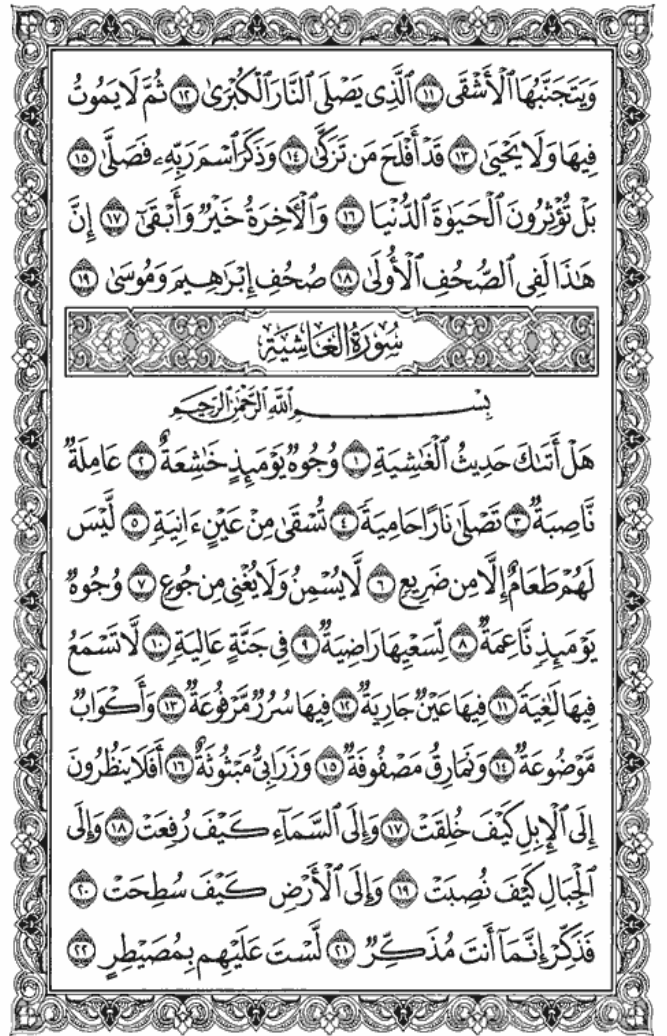 وَيَتَجَنَّبُهَا ٱلْأَشْقَى ١١ ٱلَّذِى يَصْلَى ٱلنَّارَ ٱلْكُبْرَىٰ ١٢ ثُمَّ لَا يَمُوتُ
فِيهَا وَلَا يَحْيَىٰ ١٣ قَدْ أَفْلَحَ مَن تَزَكَّىٰ ١٤ وَذَكَرَ ٱسْمَ رَبِّهِۦ فَصَلَّىٰ ١٥
بَلْ تُؤْثِرُونَ ٱلْحَيَوٰةَ ٱلدُّنْيَا ١٦ وَٱلْـَٔاخِرَةُ خَيْرٌ وَأَبْقَىٰٓ ١٧ إِنَّ
هَـٰذَا لَفِى ٱلصُّحُفِ ٱلْأُولَىٰ ١٨ صُحُفِ إِبْرَٰهِيمَ وَمُوسَىٰ ١٩
سُورَةُ الغَاشِيَةِ
بِسْمِ ٱللَّهِ ٱلرَّحْمَـٰنِ ٱلرَّحِيمِ
هَلْ أَتَىٰكَ حَدِيثُ ٱلْغَـٰشِيَةِ ١ وُجُوهٌ يَوْمَئِذٍ خَـٰشِعَةٌ ٢ عَامِلَةٌ
نَّاصِبَةٌ ٣ تَصْلَىٰ نَارًا حَامِيَةً ٤ تُسْقَىٰ مِنْ عَيْنٍ ءَانِيَةٍ ٥ لَّيْسَ
لَهُمْ طَعَامٌ إِلَّا مِن ضَرِيعٍ ٦ لَّا يُسْمِنُ وَلَا يُغْنِى مِن جُوعٍ ٧ وُجُوهٌ
يَوْمَئِذٍ نَّاعِمَةٌ ٨ لِّسَعْيِهَا رَاضِيَةٌ ٩ فِى جَنَّةٍ عَالِيَةٍ ١٠ لَّا تَسْمَعُ
فِيهَا لَـٰغِيَةً ١١ فِيهَا عَيْنٌ جَارِيَةٌ ١٢ فِيهَا سُرُرٌ مَّرْفُوعَةٌ ١٣ وَأَكْوَابٌ
مَّوْضُوعَةٌ ١٤ وَنَمَارِقُ مَصْفُوفَةٌ ١٥ وَزَرَابِىُّ مَبْثُوثَةٌ ١٦ أَفَلَا يَنظُرُونَ
إِلَى ٱلْإِبِلِ كَيْفَ خُلِقَتْ ١٧ وَإِلَى ٱلسَّمَآءِ كَيْفَ رُفِعَتْ ١٨ وَإِلَى
ٱلْجِبَالِ كَيْفَ نُصِبَتْ ١٩ وَإِلَى ٱلْأَرْضِ كَيْفَ سُطِحَتْ ٢٠
فَذَكِّرْ إِنَّمَآ أَنتَ مُذَكِّرٌ ٢١ لَّسْتَ عَلَيْهِم بِمُصَيْطِرٍ ٢٢